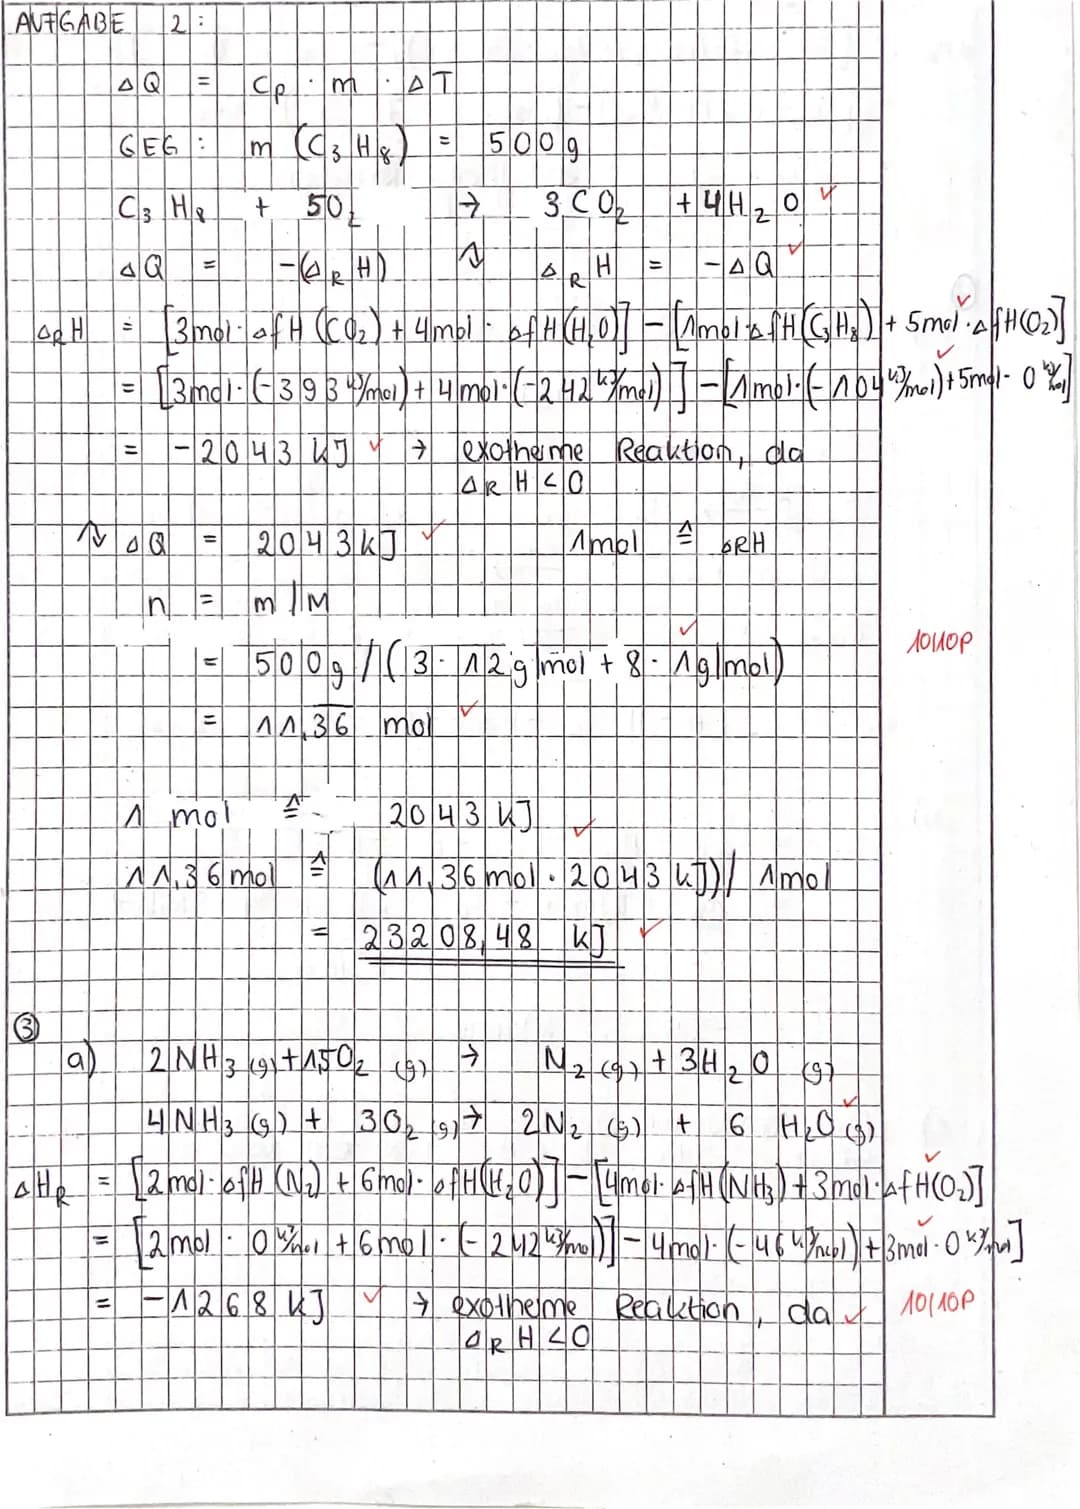 AUFGABE 2:
ΔQ = Cp · m · ΔT
GEG: m (C₃H₈) = 500g
C₃H₈ + 5O₂ → 3CO₂ + 4H₂O ✓
ΔQ = -(ΔRH) ⇒ ΔRH = -ΔQ ✓
ΔRH = [3mol·ΔfH(CO₂) + 4mol·ΔfH(H₂O)] - [1mol·ΔfH(C₃H₈) + 5mol·ΔfH(O₂)] ✓
= [3mol·(-393 kJ/mol) + 4mol·(-242 kJ/mol)] - [1mol·(-104 kJ/mol) + 5mol·0 kJ/mol] ✓
= -2043 kJ ✓ → exotherme Reaktion, da
ΔRH < 0
⇒ ΔQ = 2043 kJ ✓ 1mol ≙ ΔRH
n = m/M
= 500g/(3·12g/mol + 8·1g/mol) ✓ 10/10P
= 11,3̅6̅ mol ✓
1 mol ≙ 2043 kJ ✓
11,36mol ≙ (11,36mol · 2043 kJ)/1mol
= 23208,48 kJ ✓
③
a) 2NH₃(g) + 1,5O₂(g) → N₂(g) + 3H₂O(g)
4NH₃(g) + 3O₂(g) → 2N₂(g) + 6H₂O(g) ✓
ΔHR = [2mol·ΔfH(N₂) + 6mol·ΔfH(H₂O)] - [4mol·ΔfH(NH₃) + 3mol·ΔfH(O₂)] ✓
= [2mol·0 kJ/mol + 6mol·(-242 kJ/mol)] - 4mol·(-46 kJ/mol) + 3mol·0 kJ/mol] ✓
= -1268 kJ ✓ → exotherme Reaktion, da ✓ 10/10P
ΔRH < 0